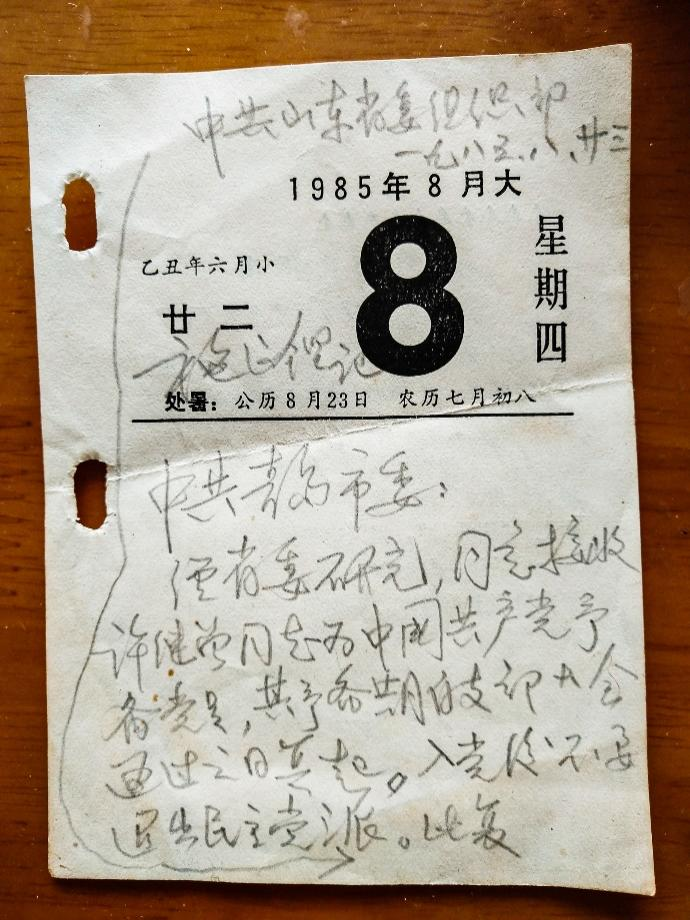 中共山东省委组织部
一九八五、八、廿三
1985年8月大
乙丑年六月小
廿二
8
星期四
处暑:公历8月23日 农历七月初八
中共青岛市委:
经省委研究,同意接收
许继曾同志为中国共产党予
备党员,其予备期自支部大会
通过之日算起。入党后不要
退出民主党派。此复